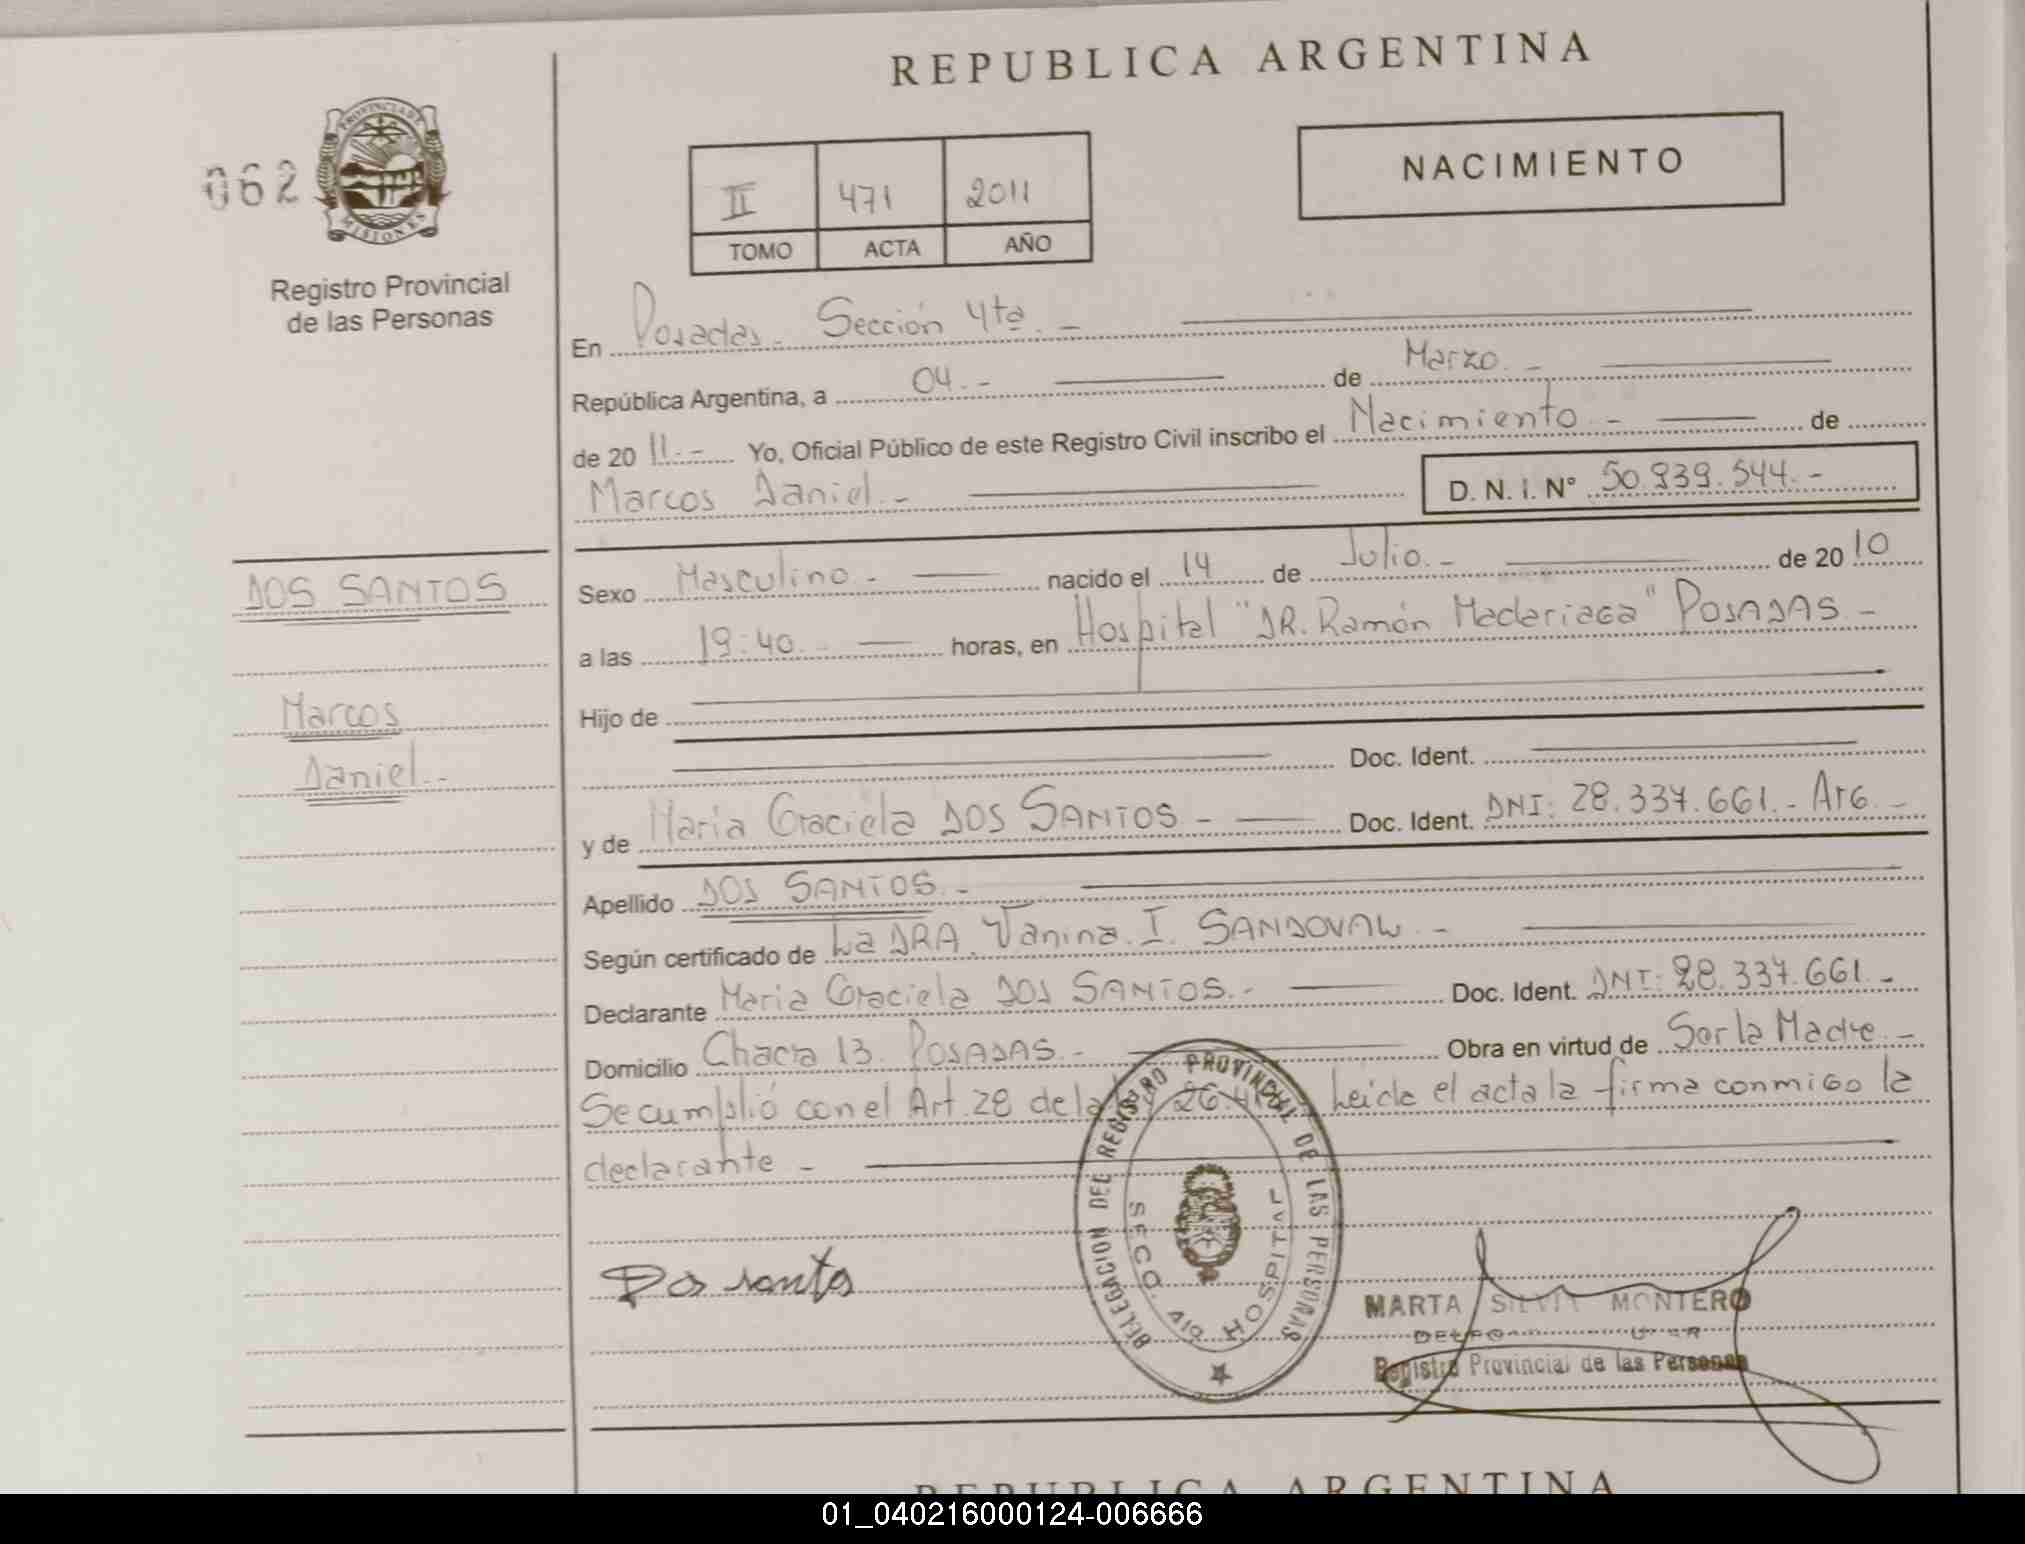 REPUBLICA ARGENTINA
062
PROVINCIA DE
MISIONES
Registro Provincial
de las Personas
NACIMIENTO
II 471 2011
TOMO ACTA AÑO
En Posadas. Sección 4ta. -
República Argentina, a 04. - de Marzo. -
de 20 11. - Yo, Oficial Público de este Registro Civil inscribo el Nacimiento. - de
Marcos Daniel. - D. N. I. N° 50.939.544. -
DOS SANTOS
Marcos
Daniel. -
Sexo Masculino - nacido el 14 de Julio. - de 20 10
a las 19:40. - horas, en Hospital "DR. Ramón Madariaga" POSADAS. -
Hijo de
Doc. Ident.
y de Maria Graciela DOS SANTOS - Doc. Ident. DNI: 28.337.661. - Arg. -
Apellido DOS SANTOS. -
Según certificado de La DRA. Vanina. I. SANDOVAL. -
Declarante Maria Graciela DOS SANTOS. - Doc. Ident. DNI: 28.337.661. -
Domicilio Chacra 13. POSADAS. - Obra en virtud de Ser la Madre. -
Se cumplió con el Art. 28 de la 26.41 Leída el acta la firma conmigo la
declarante -
DELEGACION DEL REGISTRO PROVINCIAL DE LAS PERSONAS
SECC. 4ta HOSPITAL
Dos santos
MARTA SILVIA MONTERO
Registro Provincial de las Personas
REPUBLICA ARGENTINA
01_040216000124-006666